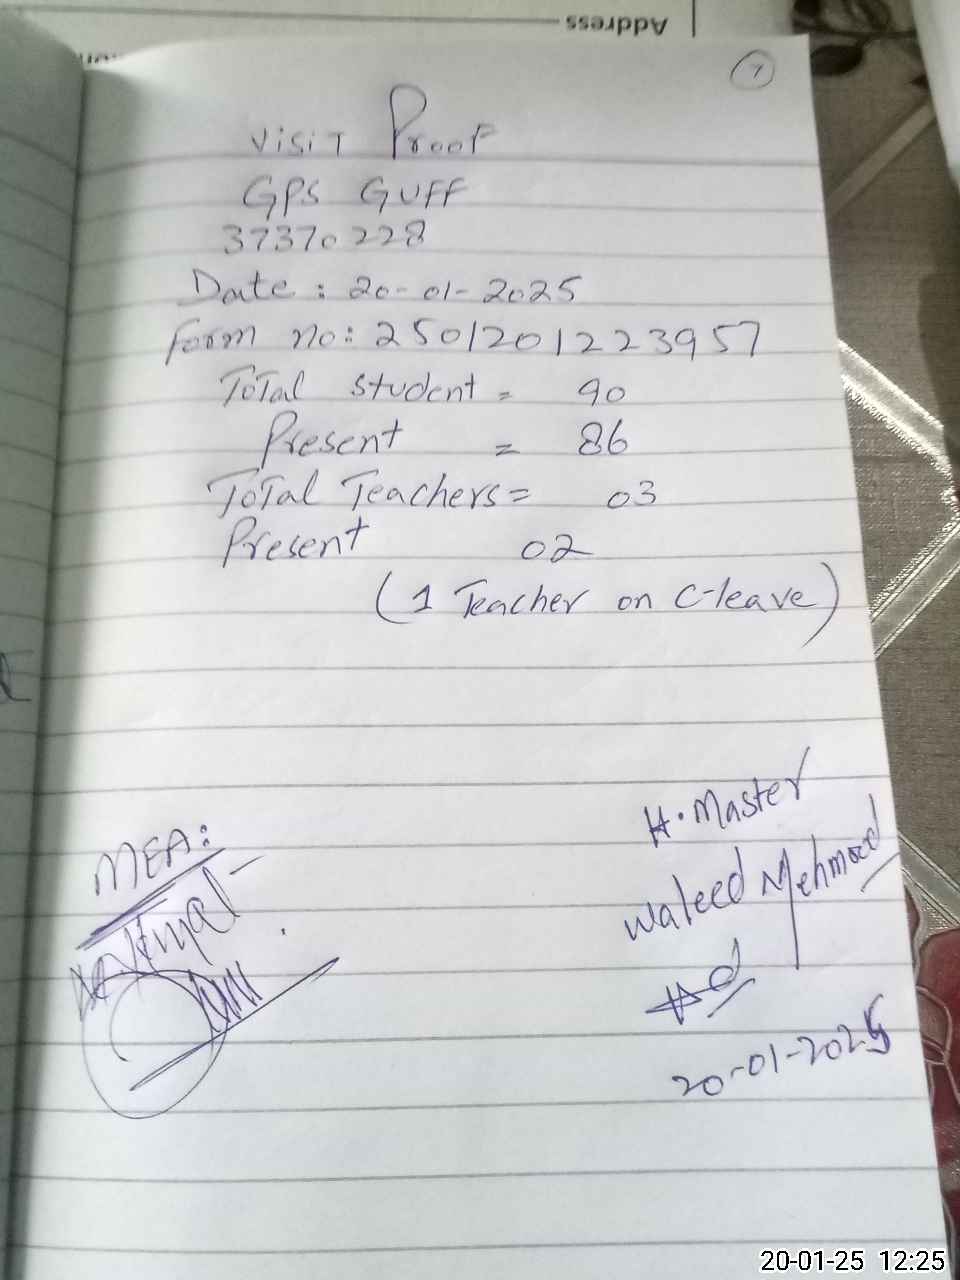 Address
7
Visit Proof
GPS GUFF
37370228
Date: 20-01-2025
Form no: 2501201223957
Total student = 90
Present = 86
Total Teachers = 03
Present 02
(1 Teacher on C-leave)
H. Master
Waleed Mehmood
20-01-2025
MEA:
20-01-25 12:25